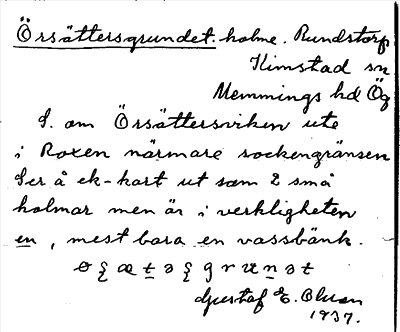 Örsättersgrundet. holme. Rundstorp
Kimstad sn
Memmings hd Ög
S. om Örsättersviken ute
i Roxen närmare sockengränsen
Ser å ek-kart ut som 2 små
holmar men är i verkligheten
en, mest bara en vassbänk.
Gustaf E.
1937.